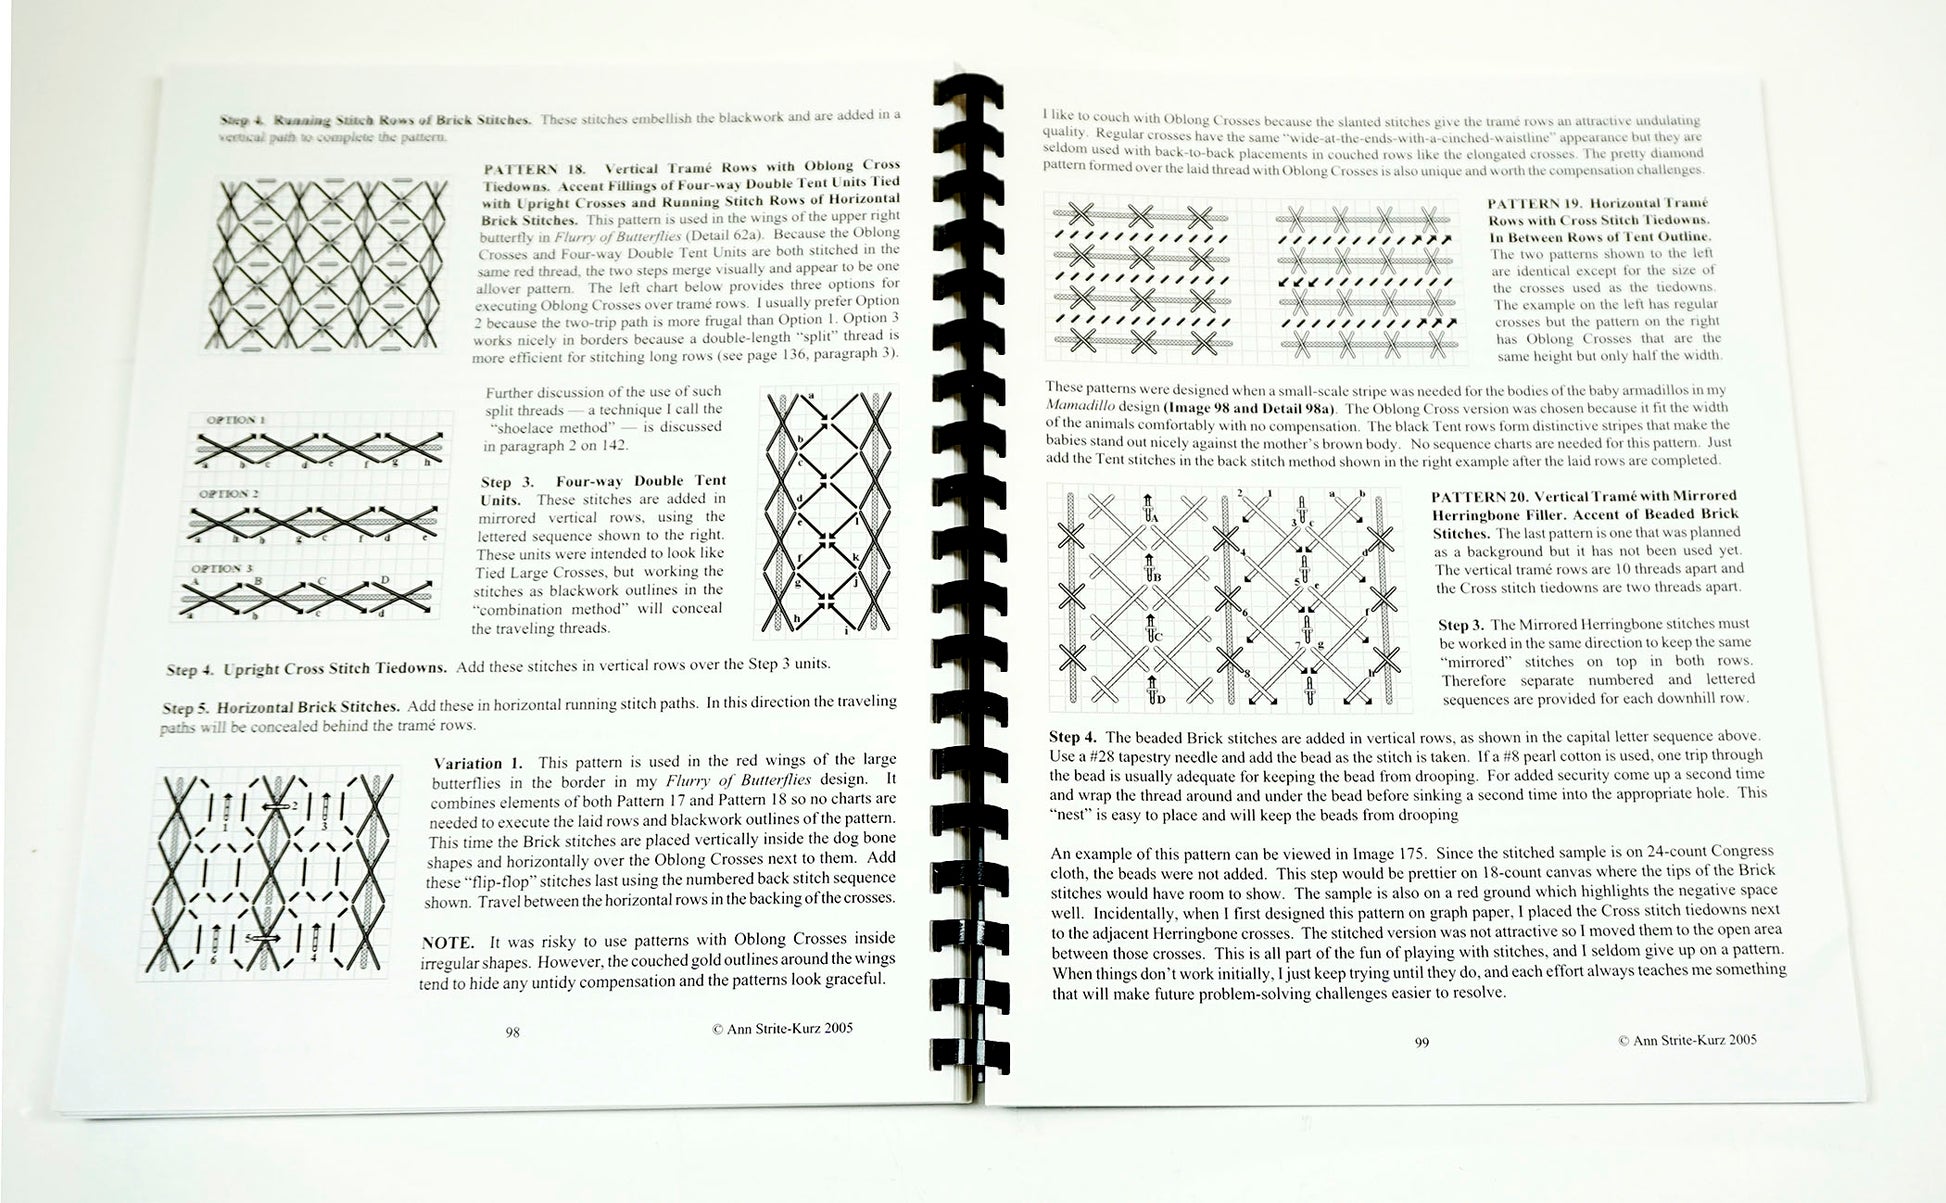 Step 4. Running Stitch Rows of Brick Stitches. These stitches embellish the blackwork and are added in a
vertical path to complete the pattern.
PATTERN 18. Vertical Tramé Rows with Oblong Cross
Tiedowns. Accent Fillings of Four-way Double Tent Units Tied
with Upright Crosses and Running Stitch Rows of Horizontal
Brick Stitches. This pattern is used in the wings of the upper right
butterfly in Flurry of Butterflies (Detail 62a). Because the Oblong
Crosses and Four-way Double Tent Units are both stitched in the
same red thread, the two steps merge visually and appear to be one
allover pattern. The left chart below provides three options for
executing Oblong Crosses over tramé rows. I usually prefer Option
2 because the two-trip path is more frugal than Option 1. Option 3
works nicely in borders because a double-length “split” thread is
more efficient for stitching long rows (see page 136, paragraph 3).
Further discussion of the use of such
split threads — a technique I call the
“shoelace method” — is discussed
in paragraph 2 on 142.
OPTION 1
a b c d e f g h
OPTION 2
a h b g c f d e
OPTION 3
A B C D
a b c d
Step 3. Four-way Double Tent
Units. These stitches are added in
mirrored vertical rows, using the
lettered sequence shown to the right.
These units were intended to look like
Tied Large Crosses, but working the
stitches as blackwork outlines in the
“combination method” will conceal
the traveling threads.
a
b
c
d
e l
f k
g j
h i
Step 4. Upright Cross Stitch Tiedowns. Add these stitches in vertical rows over the Step 3 units.
Step 5. Horizontal Brick Stitches. Add these in horizontal running stitch paths. In this direction the traveling
paths will be concealed behind the tramé rows.
Variation 1. This pattern is used in the red wings of the large
butterflies in the border in my Flurry of Butterflies design. It
combines elements of both Pattern 17 and Pattern 18 so no charts are
needed to execute the laid rows and blackwork outlines of the pattern.
This time the Brick stitches are placed vertically inside the dog bone
shapes and horizontally over the Oblong Crosses next to them. Add
these “flip-flop” stitches last using the numbered back stitch sequence
shown. Travel between the horizontal rows in the backing of the crosses.
2
1 3
5
6 4
NOTE. It was risky to use patterns with Oblong Crosses inside
irregular shapes. However, the couched gold outlines around the wings
tend to hide any untidy compensation and the patterns look graceful.
98 © Ann Strite-Kurz 2005
I like to couch with Oblong Crosses because the slanted stitches give the tramé rows an attractive undulating
quality. Regular crosses have the same “wide-at-the-ends-with-a-cinched-waistline” appearance but they are
seldom used with back-to-back placements in couched rows like the elongated crosses. The pretty diamond
pattern formed over the laid thread with Oblong Crosses is also unique and worth the compensation challenges.
PATTERN 19. Horizontal Tramé
Rows with Cross Stitch Tiedowns.
In Between Rows of Tent Outline.
The two patterns shown to the left
are identical except for the size of
the crosses used as the tiedowns.
The example on the left has regular
crosses but the pattern on the right
has Oblong Crosses that are the
same height but only half the width.
These patterns were designed when a small-scale stripe was needed for the bodies of the baby armadillos in my
Mamadillo design (Image 98 and Detail 98a). The Oblong Cross version was chosen because it fit the width
of the animals comfortably with no compensation. The black Tent rows form distinctive stripes that make the
babies stand out nicely against the mother’s brown body. No sequence charts are needed for this pattern. Just
add the Tent stitches in the back stitch method shown in the right example after the laid rows are completed.
2 1 a b
A 3 c
4 d
B 5 e
6 f
C 7 g
8 h
D
PATTERN 20. Vertical Tramé with Mirrored
Herringbone Filler. Accent of Beaded Brick
Stitches. The last pattern is one that was planned
as a background but it has not been used yet.
The vertical tramé rows are 10 threads apart and
the Cross stitch tiedowns are two threads apart.
Step 3. The Mirrored Herringbone stitches must
be worked in the same direction to keep the same
“mirrored” stitches on top in both rows.
Therefore separate numbered and lettered
sequences are provided for each downhill row.
Step 4. The beaded Brick stitches are added in vertical rows, as shown in the capital letter sequence above.
Use a #28 tapestry needle and add the bead as the stitch is taken. If a #8 pearl cotton is used, one trip through
the bead is usually adequate for keeping the bead from drooping. For added security come up a second time
and wrap the thread around and under the bead before sinking a second time into the appropriate hole. This
“nest” is easy to place and will keep the beads from drooping
An example of this pattern can be viewed in Image 175. Since the stitched sample is on 24-count Congress
cloth, the beads were not added. This step would be prettier on 18-count canvas where the tips of the Brick
stitches would have room to show. The sample is also on a red ground which highlights the negative space
well. Incidentally, when I first designed this pattern on graph paper, I placed the Cross stitch tiedowns next
to the adjacent Herringbone crosses. The stitched version was not attractive so I moved them to the open area
between those crosses. This is all part of the fun of playing with stitches, and I seldom give up on a pattern.
When things don’t work initially, I just keep trying until they do, and each effort always teaches me something
that will make future problem-solving challenges easier to resolve.
99 © Ann Strite-Kurz 2005